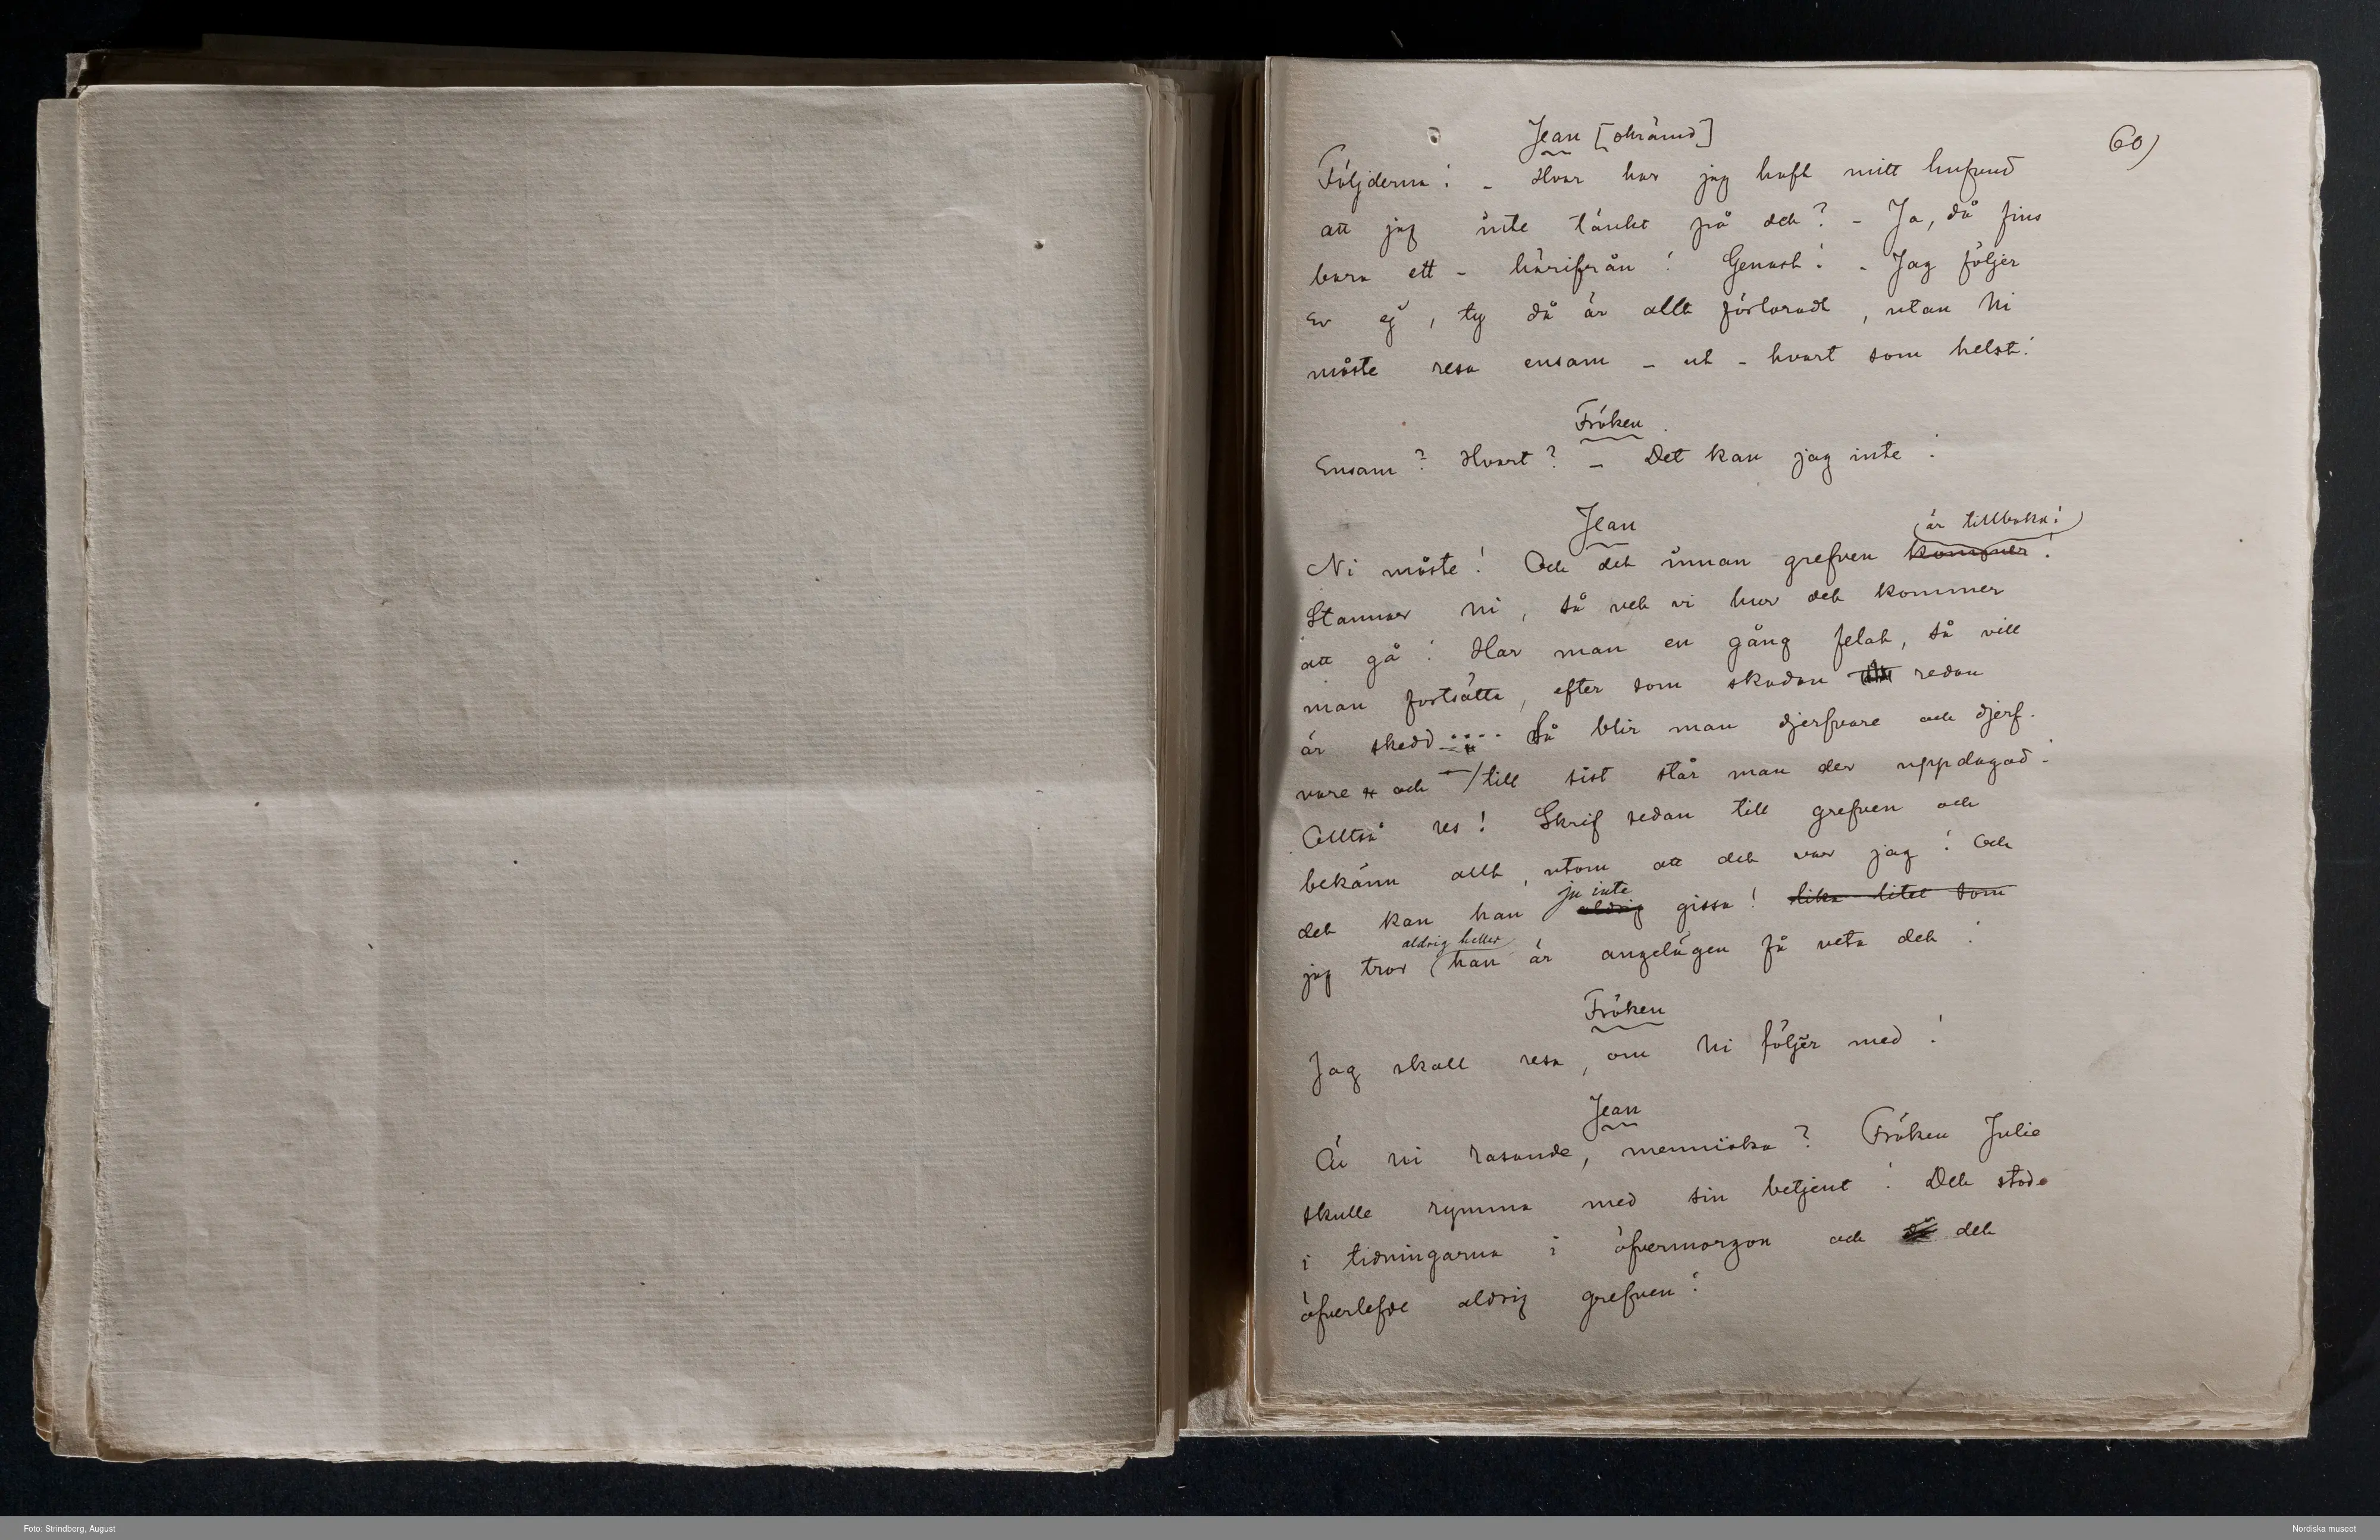 60)
Jean [skrämd]
Följderna! – Hvar har jag haft mitt hufvud
att jag inte tänkt på det? – Ja, då fins
bara ett – härifrån! Genast! – Jag följer
Er ej, ty då är allt förloradt, utan Ni
måste resa ensam – ut – hvart som helst!
Fröken.
Ensam? Hvart? – Det kan jag inte!
Jean
är tillbaka!
Ni måste! Och det innan grefven kommer!
Stannar ni, så vet vi hur det kommer
att gå! Har man en gång felat, så vill
man fortsätta, efter som skadan redan
är skedd.... Så blir man djerfvare och djerf-
vare och till sist står man der uppdagad!
Alltså res! Skrif sedan till grefven och
bekänn allt, utom att det var jag! Och
ju inte
det kan han aldrig gissa! lika litet som
aldrig heller
jag tror han är angelägen få veta det!
Fröken
Jag skall resa, om Ni följer med!
Jean
Är ni rasande, menniska? Fröken Julie
skulle rymma med sin betjent! Det stode
i tidningarna i öfvermorgon och då det
öfverlefde aldrig grefven!
Foto: Strindberg, August
Nordiska museet